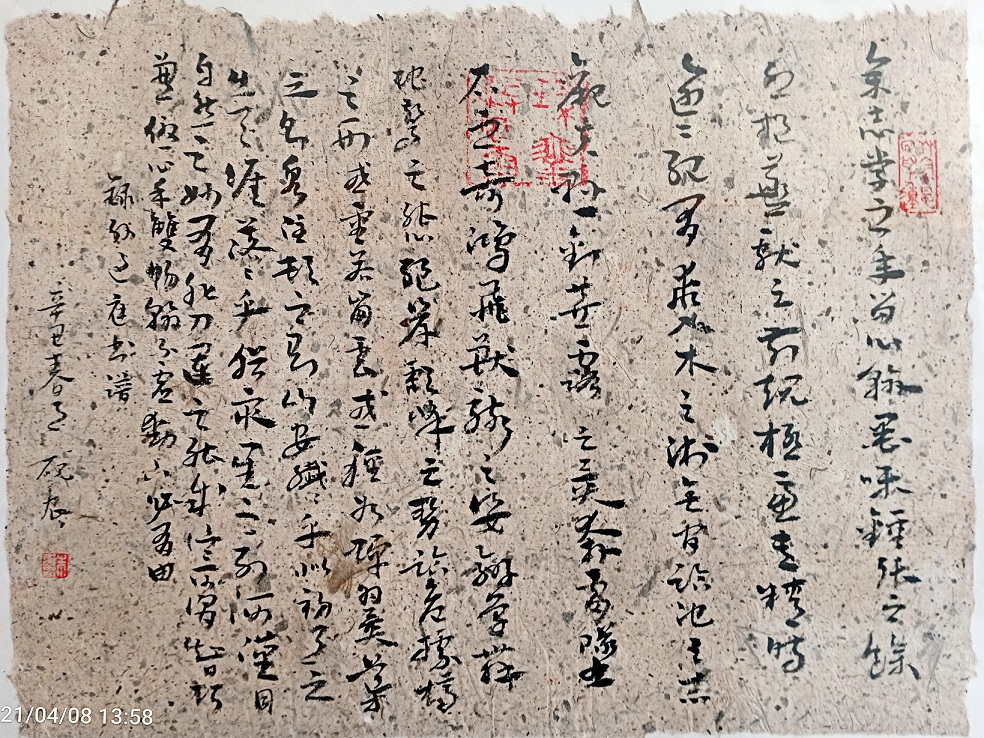 余志學之年留心翰墨味鍾張之餘
烈挹羲獻之前規極慮專精時
逾二紀有乖入木之術無間臨池之志
觀夫懸針垂露之異奔雷墜石
之奇鴻飛獸駭之姿鸞舞
蛇驚之態絕岸頹峰之勢臨危據槁
之形或重若崩雲或輕如蟬翼導
之則泉注頓之則山安纖纖乎似初月之
出天涯落落乎猶眾星之列河漢同
自然之妙有非力運之能成信可謂智巧
兼優心手雙暢翰不虛動下必有由
錄孫過庭書譜
辛丑春月
21/04/08 13:58